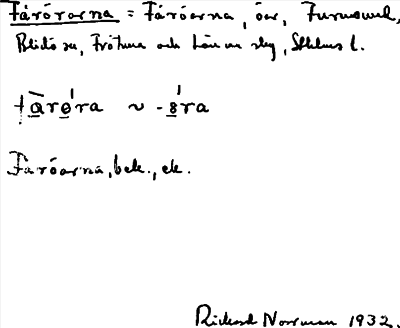 Fåröarna = Fåröarna, öar, Furusund,
Blidö sn, Frötuna och Länna slg, Sthlms l.
Fåröarna, bek., ek.
Rickard Norrman 1932.